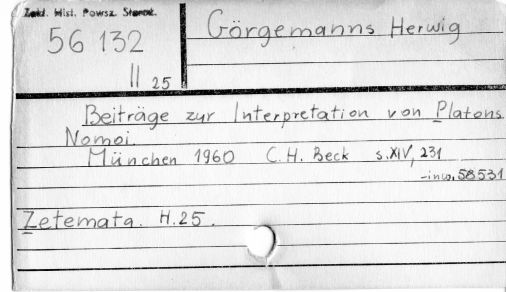 Zakł. Hist. Powsz. Staroż.
56 132
II 25
Görgemanns Herwig
Beiträge zur Interpretation von Platons
Nomoi.
München 1960 C.H. Beck s.XIV, 231
-inw. 58531
Zetemata. H.25.